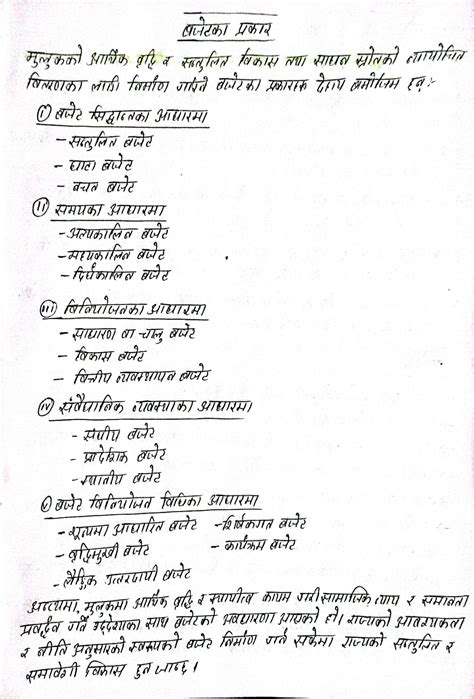 बजेटका प्रकार
मुलुकको आर्थिक वृद्धि व सन्तुलित विकास तथा साधन स्रोतको न्यायोचित
वितरणका लागि निर्माण गरिने बजेटका प्रकारहरू देहाय बमोजिम छन् :-
i) बजेट सिद्धान्तका आधारमा
- सन्तुलित बजेट
- घाटा बजेट
- बचत बजेट
ii) समयका आधारमा
- अल्पकालिन बजेट
- मध्यकालिन बजेट
- दिर्घकालिन बजेट
iii) विनियोजनका आधारमा
- साधारण वा चालु बजेट
- विकास बजेट
- वित्तीय व्यवस्थापन बजेट
iv) संवैधानिक व्यवस्थाका आधारमा
- संघीय बजेट
- प्रादेशिक बजेट
- स्थानीय बजेट
v) बजेट विनियोजन विधिका आधारमा
- शून्यमा आधारित बजेट - शिर्षकगत बजेट
- वृद्धिमुखी बजेट - कार्यक्रम बजेट
- लैङ्गिक उत्तरदायी बजेट
अन्त्यमा, मुलुकमा आर्थिक वृद्धि र स्थायित्व कायम गरी सामाजिक न्याय र समानता
प्रवर्द्धन गर्ने उद्देश्यका साथ बजेटको अवधारणा आएको हो। राज्यको आवश्यकता
र नीति अनुसारको स्वरूपको बजेट निर्माण गर्न सकेमा राज्यको सन्तुलित र
समावेशी विकास हुन जान्छ।